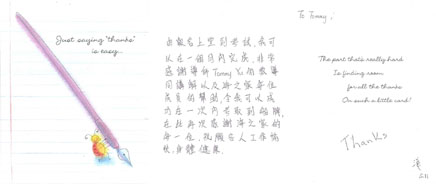 Just saying "thanks"
is easy...
由報名上堂到考試,我可
以在一個月內完成,非常
感謝導師Tommy
同講解以及海之家每位
成員的幫助,令我可以成
功在一次內考取到船牌,
在此再次感謝海之家的
每一位,祝願各人工作愉
快,身體健康.
To Tommy;
The part that's really hard
Is finding room
for all the thanks
On such a little card!
Thanks